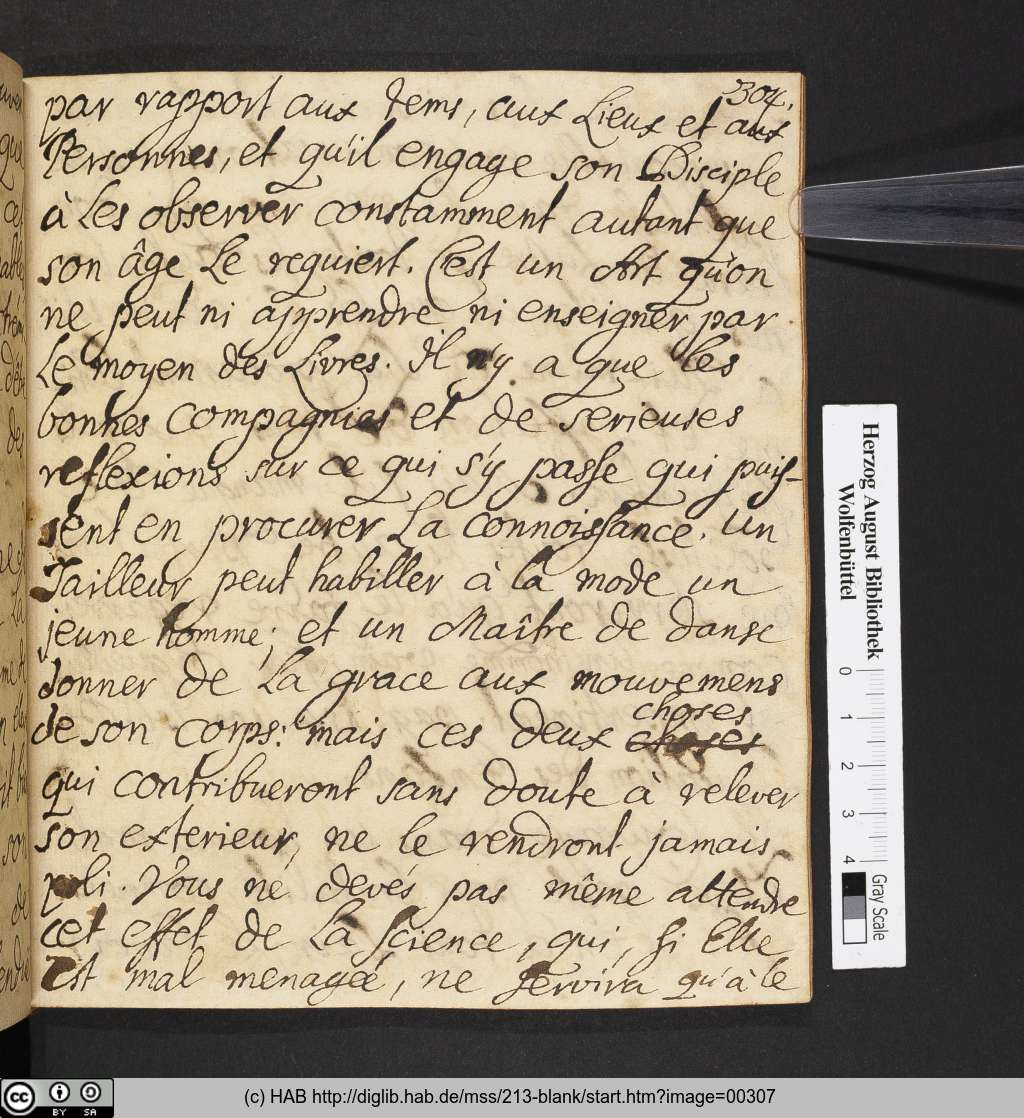 304.
par rapport aux tems, aux Lieux et aux
Personnes, et qu'il engage son Disciple
à Les observer constamment autant que
son âge Le requiert. C'est un Art qu'on
ne peut ni apprendre ni enseigner par
Le moyen des Livres. Il n'y a que les
bonnes compagnies et de serieuses
reflexions sur ce qui s'y passe qui puis-
sent en procurer La connoissance. Un
Tailleur peut habiller à la mode un
jeune homme; et un Maître de danse
donner de La grace aux mouvemens
de son corps: mais ces deux choses
choses
qui contribueront sans doute à relever
son exterieur, ne le rendront jamais
poli. Vous ne devés pas même attendre
cet effet de La science, qui, si Elle
est mal menagée, ne servira qu'à le
Herzog August Bibliothek
Wolfenbüttel
0 1 2 3 4
Gray Scale
cc BY SA
(c) HAB http://diglib.hab.de/mss/213-blank/start.htm?image=00307